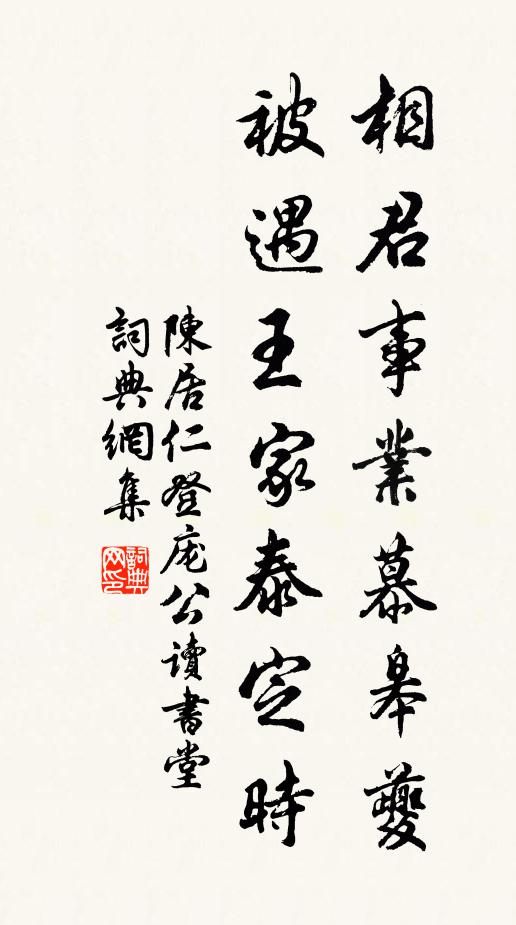 相君事業慕皋夔
被遇王家泰定時
陳居仁登庞公讀書堂
詞典網集
詞典网印